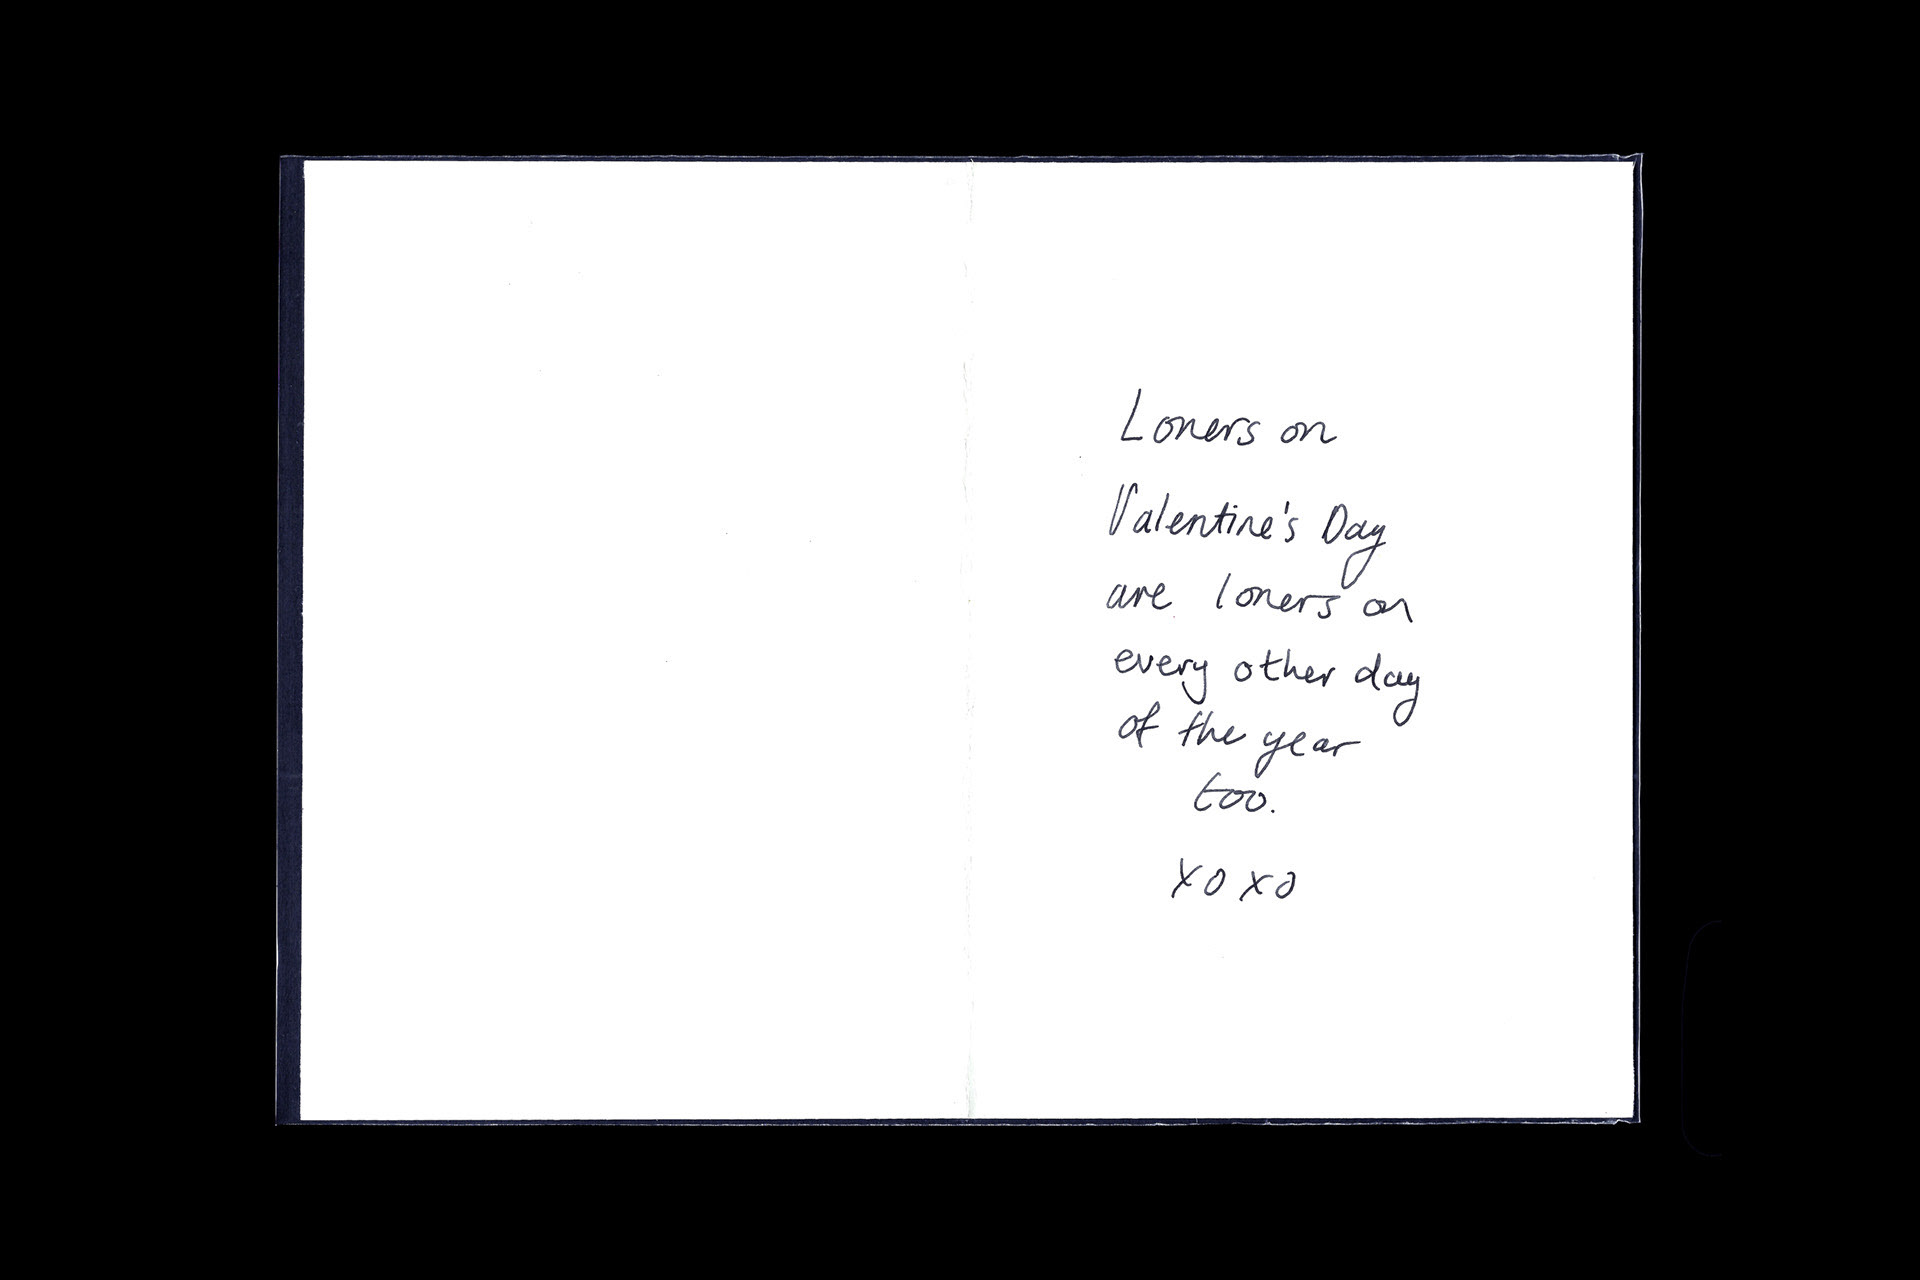 Loners on
Valentine's Day
are loners on
every other day
of the year
too.
xoxo